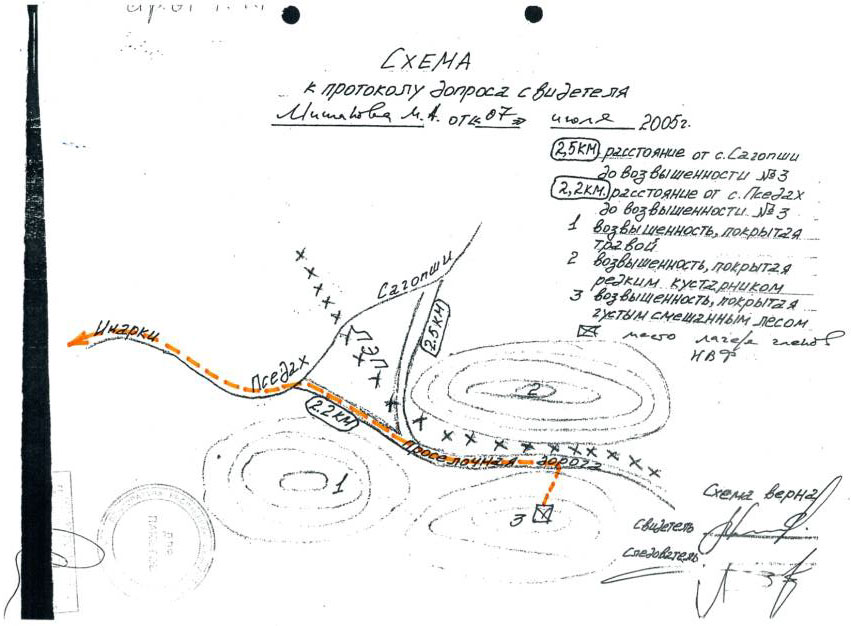 СХЕМА
к протоколу допроса свидетеля
М. А. от «07» июля 2005г.
2,5КМ расстояние от с.Сагопши
до возвышенности №3
2,2КМ. расстояние от с.Пседах
до возвышенности №3
1 возвышенность, покрытая
травой
2 возвышенность, покрытая
редким кустарником
3 возвышенность, покрытая
густым смешанным лесом
место лагеря членов
НВФ
Сагопши
Инарки
ЛЭП
2.5КМ
Пседах
2.2КМ
2
Проселочная дорога
1
3
Схема верна
Свидетель
Следователь